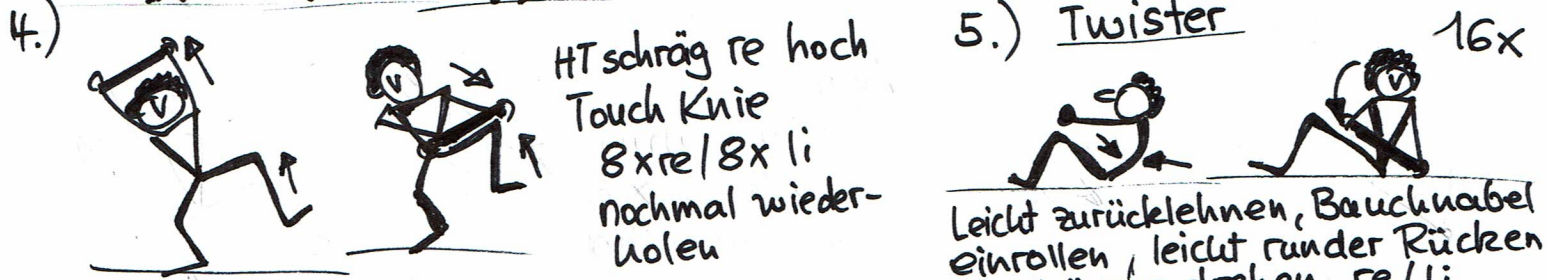 4.)
HT schräg re hoch
Touch Knie
8xre/8x li
nochmal wieder-
holen
5.) Twister 16x
Leicht zurücklehnen, Bauchnabel
einrollen, leicht runder Rücken
re/li